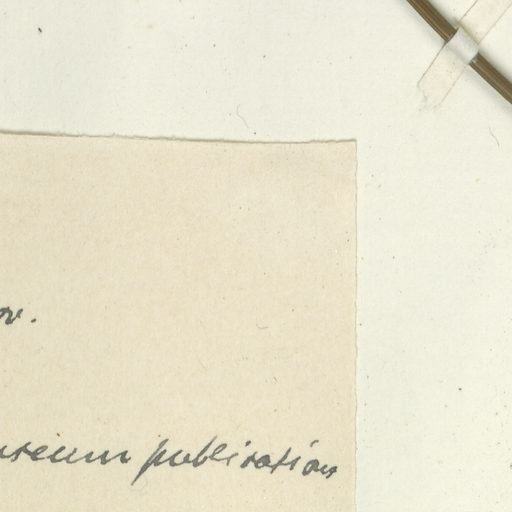 ov.
useum publication